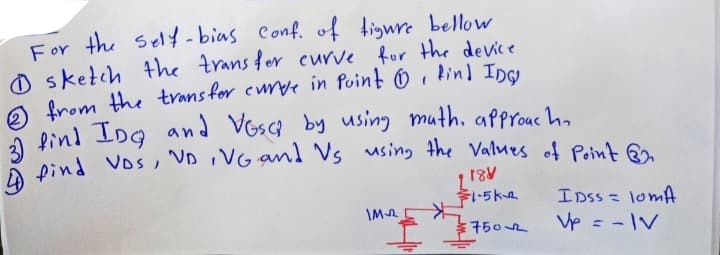 For the self-bias conf. of figure bellow
① sketch the transfer curve for the device
② from the transfer curve in Point ①, find IDQ
3) find IDQ and VGSQ by using math. approach.
④ find VDS, VD, VG and Vs using the values of Point ③.
18V
1.5kΩ IDSS = 10mA
1MΩ
750Ω Vp = -1V